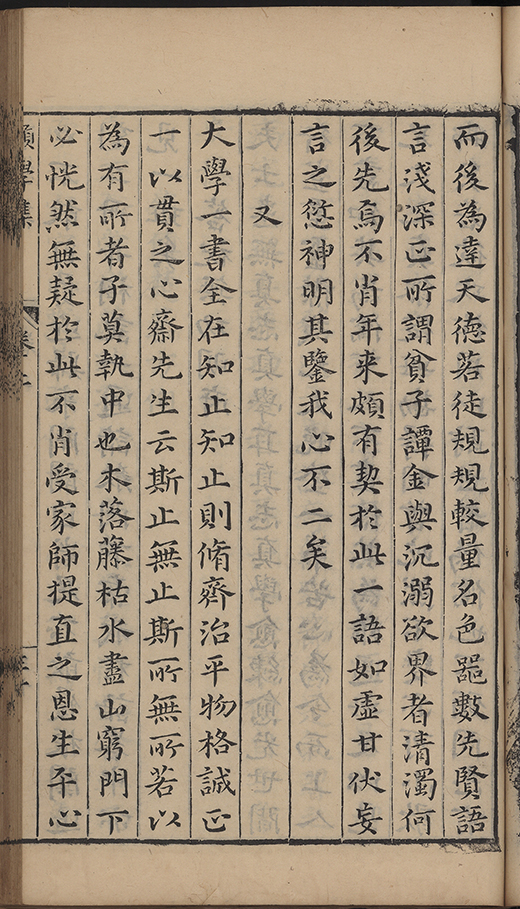 而後為達天德若徒規規較量名色噐數先賢語
言淺深正所謂貧子譚金與沉溺欲界者清濁何
後先焉不肖年来頗有契於此一語如虛甘伏妄
言之愆神明其鑒我心不二矣
又
大學一書全在知止知止則脩齊治平物格誠正
一以貫之心齋先生云斯止無止斯所無所若以
為有所者子莫執中也木落藤枯水盡山窮門下
必恍然無疑於此不肖受家師提直之恩生平心
學集
卷之